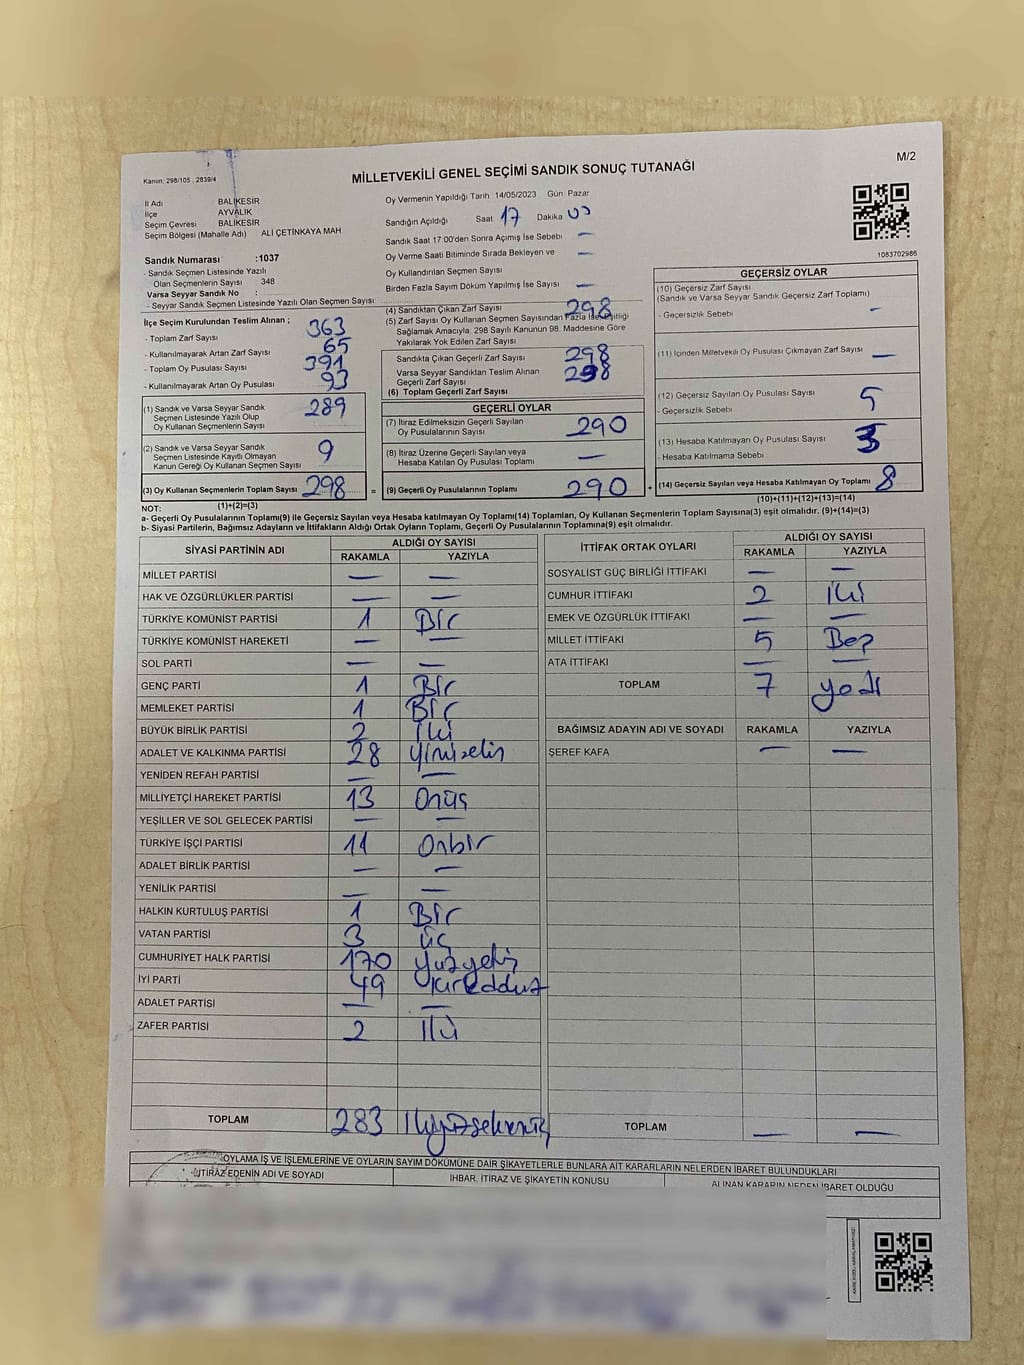 Kanun: 298/105 , 2839/4
MİLLETVEKİLİ GENEL SEÇİMİ SANDIK SONUÇ TUTANAĞI
M/2
İl Adı BALIKESİR
İlçe AYVALIK
Seçim Çevresi BALIKESİR
Seçim Bölgesi (Mahalle Adı) : ALİ ÇETİNKAYA MAH
Sandık Numarası :1037
- Sandık Seçmen Listesinde Yazılı
Olan Seçmenlerin Sayısı 348
Varsa Seyyar Sandık No :
- Seyyar Sandık Seçmen Listesinde Yazılı Olan Seçmen Sayısı:
Oy Vermenin Yapıldığı Tarih 14/05/2023 Gün Pazar
Sandığın Açıldığı Saat 17 Dakika
Sandık Saat 17:00'den Sonra Açımış İse Sebebi —
Oy Verme Saati Bitiminde Sırada Bekleyen ve —
Oy Kullandırılan Seçmen Sayısı
Birden Fazla Sayım Döküm Yapılmış İse Sayısı —
1083702986
İlçe Seçim Kurulundan Teslim Alınan ;
- Toplam Zarf Sayısı 363
- Kullanılmayarak Artan Zarf Sayısı 65
- Toplam Oy Pusulası Sayısı 391
- Kullanılmayarak Artan Oy Pusulası 93
(1) Sandık ve Varsa Seyyar Sandık 289
Seçmen Listesinde Yazılı Olup
Oy Kullanan Seçmenlerin Sayısı
(2) Sandık ve Varsa Seyyar Sandık 9
Seçmen Listesinde Kayıtlı Olmayan
Kanun Gereği Oy Kullanan Seçmen Sayısı
(3) Oy Kullanan Seçmenlerin Toplam Sayısı 298
(1)+(2)=(3)
(4) Sandıktan Çıkan Zarf Sayısı 298
(5) Zarf Sayısı Oy Kullanan Seçmen Sayısından Fazla İse, Eşitliği
Sağlamak Amacıyla: 298 Sayılı Kanunun 98. Maddesine Göre
Yakılarak Yok Edilen Zarf Sayısı
Sandıkta Çıkan Geçerli Zarf Sayısı 298
Varsa Seyyar Sandıktan Teslim Alınan 298
Geçerli Zarf Sayısı
(6) Toplam Geçerli Zarf Sayısı
GEÇERLİ OYLAR
(7) İtiraz Edilmeksizin Geçerli Sayılan 290
Oy Pusulalarının Sayısı
(8) İtiraz Üzerine Geçerli Sayılan veya —
Hesaba Katılan Oy Pusulası Toplamı
= (9) Geçerli Oy Pusulalarının Toplamı 290
GEÇERSİZ OYLAR
(10) Geçersiz Zarf Sayısı
(Sandık ve Varsa Seyyar Sandık Geçersiz Zarf Toplamı)
- Geçersizlik Sebebi —
(11) İçinden Milletvekili Oy Pusulası Çıkmayan Zarf Sayısı —
(12) Geçersiz Sayılan Oy Pusulası Sayısı 5
- Geçersizlik Sebebi
(13) Hesaba Katılmayan Oy Pusulası Sayısı 3
- Hesaba Katılmama Sebebi
+ (14) Geçersiz Sayılan veya Hesaba Katılmayan Oy Toplamı 8
(10)+(11)+(12)+(13)=(14)
NOT:
a- Geçerli Oy Pusulalarının Toplamı(9) ile Geçersiz Sayılan veya Hesaba katılmayan Oy Toplamı(14) Toplamları, Oy Kullanan Seçmenlerin Toplam Sayısına(3) eşit olmalıdır. (9)+(14)=(3)
b- Siyasi Partilerin, Bağımsız Adayların ve İttifakların Aldığı Ortak Oyların Toplamı, Geçerli Oy Pusulalarının Toplamına(9) eşit olmalıdır.
SİYASİ PARTİNİN ADI ALDIĞI OY SAYISI
RAKAMLA YAZIYLA
MİLLET PARTİSİ — —
HAK VE ÖZGÜRLÜKLER PARTİSİ — —
TÜRKİYE KOMÜNİST PARTİSİ 1 Bir
TÜRKİYE KOMÜNİST HAREKETİ — —
SOL PARTİ — —
GENÇ PARTİ 1 Bir
MEMLEKET PARTİSİ 1 Bir
BÜYÜK BİRLİK PARTİSİ 2 iki
ADALET VE KALKINMA PARTİSİ 28
YENİDEN REFAH PARTİSİ — —
MİLLİYETÇİ HAREKET PARTİSİ 13 Onüç
YEŞİLLER VE SOL GELECEK PARTİSİ — —
TÜRKİYE İŞÇİ PARTİSİ 11 Onbir
ADALET BİRLİK PARTİSİ — —
YENİLİK PARTİSİ — —
HALKIN KURTULUŞ PARTİSİ 1 Bir
VATAN PARTİSİ 3 üç
CUMHURİYET HALK PARTİSİ 170
İYİ PARTİ 49
ADALET PARTİSİ — —
ZAFER PARTİSİ 2 İki
TOPLAM 283
İTTİFAK ORTAK OYLARI ALDIĞI OY SAYISI
RAKAMLA YAZIYLA
SOSYALİST GÜÇ BİRLİĞİ İTTİFAKI — —
CUMHUR İTTİFAKI 2 iki
EMEK VE ÖZGÜRLÜK İTTİFAKI — —
MİLLET İTTİFAKI 5 Beş
ATA İTTİFAKI — —
TOPLAM 7 yedi
BAĞIMSIZ ADAYIN ADI VE SOYADI RAKAMLA YAZIYLA
ŞEREF KAFA — —
TOPLAM — —
OYLAMA İŞ VE İŞLEMLERİNE VE OYLARIN SAYIM DÖKÜMÜNE DAİR ŞİKAYETLERLE BUNLARA AİT KARARLARIN NELERDEN İBARET BULUNDUKLARI
İTİRAZ EDENİN ADI VE SOYADI İHBAR, İTİRAZ VE ŞİKAYETİN KONUSU ALINAN KARARIN NEDEN İBARET OLDUĞU